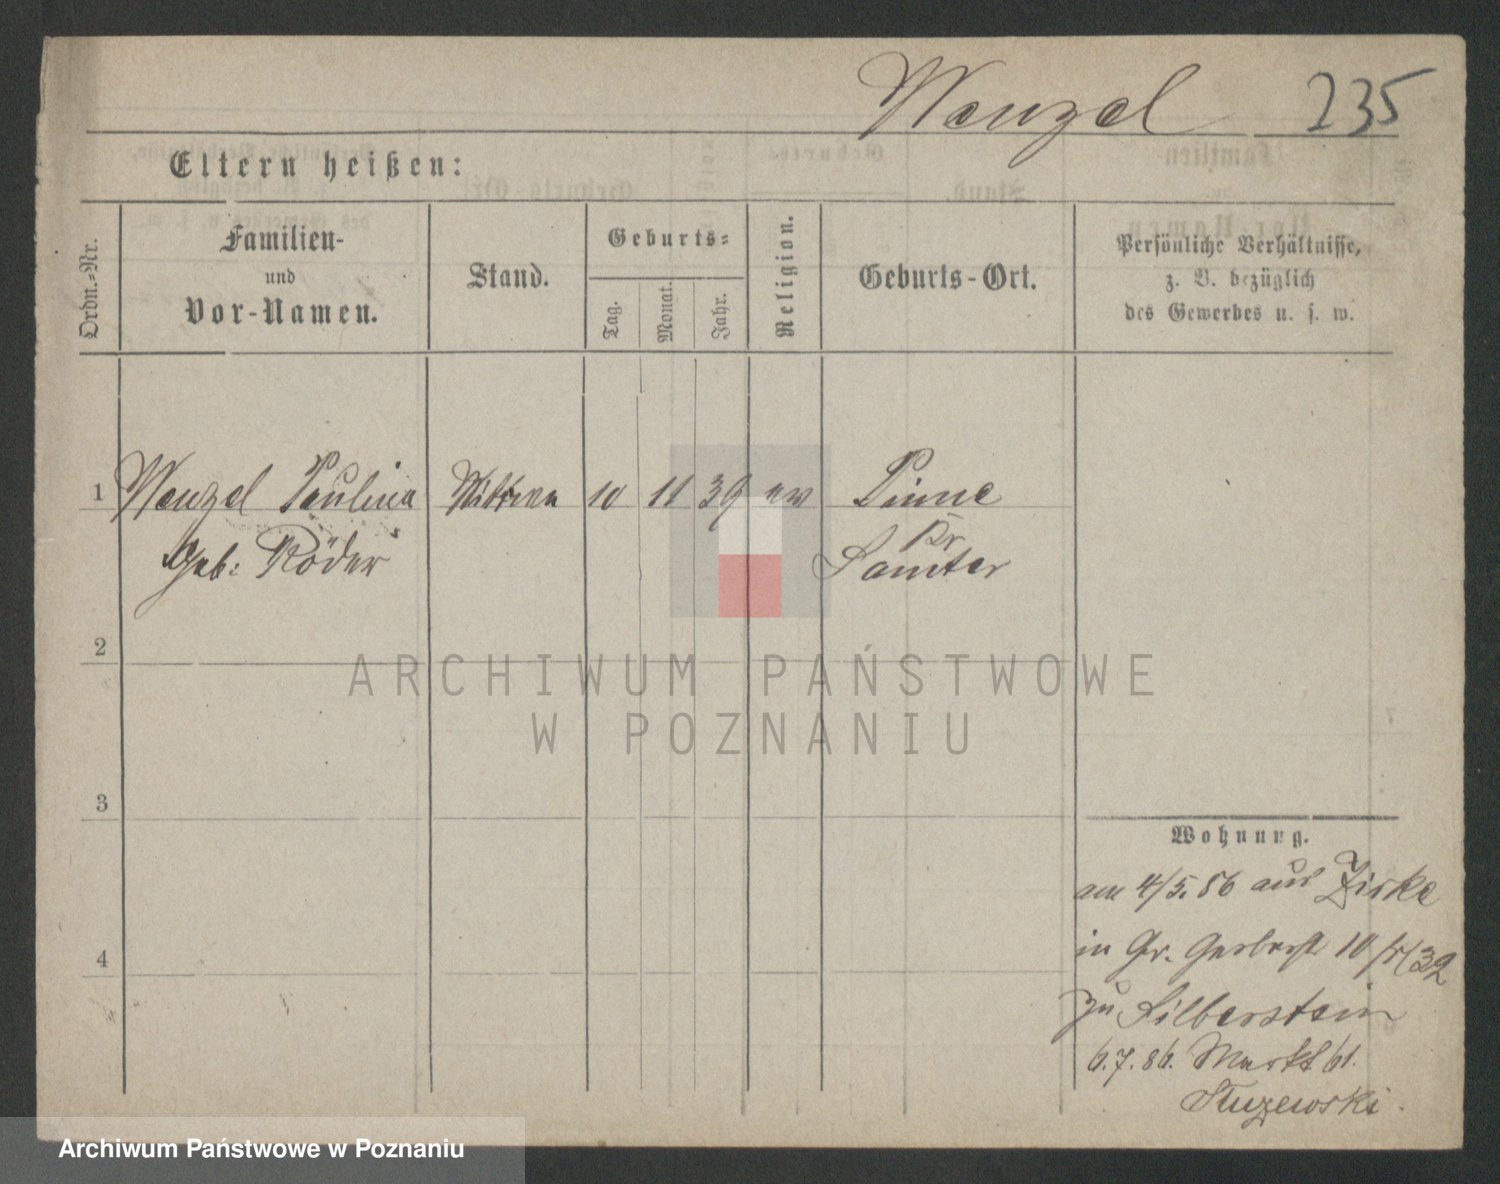 Wenzel 235
Eltern heißen:
Ordn.-Nr.
Familien-
und
Vor-Namen.
Stand.
Geburts-
Tag.
Monat.
Jahr.
Religion.
Geburts-Ort.
Persönliche Verhältnisse,
z. B. bezüglich
des Gewerbes u. s. w.
1 Wenzel Paulina Wittwe 10 11 39 ev Pinne
geb: Röder Kr
Samter
2
3
4
Wohnung.
am 4/5. 86 aus Zirke
in Gr. Gerberst 10
zu Silberstein
6.7.86. Markt 61.
Sluzewski.
ARCHIWUM PAŃSTWOWE
W POZNANIU
Archiwum Państwowe w Poznaniu